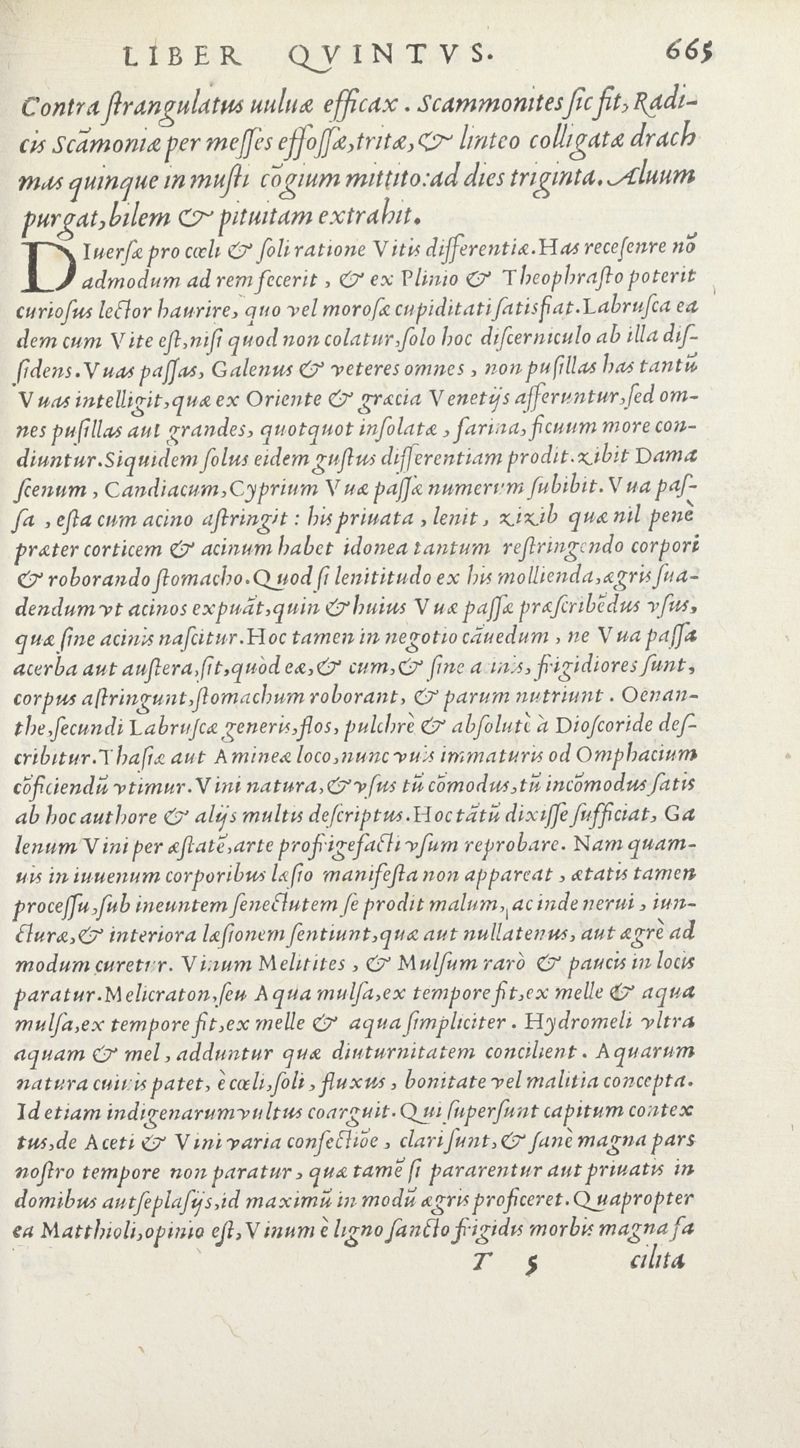 LIBER QVINTVS. 665
Contra ſtrangulatus uuluæ efficax. Scammonites ſic fit, Radi-
cis Scāmoniæ per meſſes effoſſæ, tritæ, & linteo colligatæ drach
mas quinque in muſti cōgium mittito: ad dies triginta. Aluum
purgat, bilem & pituitam extrahit.
DIuerſæ pro cœli & ſoli ratione Vitis differentiæ. Has receſenre nō
admodum ad rem fecerit, & ex Plinio & Theophraſto poterit
curioſus lector haurire, quo vel moroſæ cupiditati ſatisfiat. Labruſca ea
dem cum Vite eſt, niſi quod non colatur, ſolo hoc diſcerniculo ab illa diſ-
ſidens. Vuas paſſas, Galenus & veteres omnes, non puſillas has tantū
Vuas intelligit, quæ ex Oriente & græcia Venetijs afferuntur, ſed om-
nes puſillas aut grandes, quotquot inſolatæ, farina, ficuum more con-
diuntur. Siquidem ſolus eidem guſtus differentiam prodit. zibit Dama
ſcenum, Candiacum, Cyprium Vuæ paſſæ numerum ſubibit. Vua paſ-
ſa, eſta cum acino aſtringit: his priuata, lenit, zizib quæ nil penè
præter corticem & acinum habet idonea tantum reſtringendo corpori
& roborando ſtomacho. Quod ſi lenititudo ex his mollienda, ægris ſua-
dendum vt acinos expuāt, quin & huius Vuæ paſſæ præſcribēdus vſus,
quæ ſine acinis naſcitur. Hoc tamen in negotio cāuedum, ne Vua paſſa
acerba aut auſtera, ſit, quòd eæ, & cum, & ſine a inis, frigidiores ſunt,
corpus aſtringunt, ſtomachum roborant, & parum nutriunt. Oenan-
the, ſecundi Labruſcæ generis, flos, pulchrè & abſolutè à Dioſcoride deſ-
cribitur. Thaſiæ aut Amineæ loco, nunc vuis immaturis od Omphacium
cōficiendū vtimur. Vini natura, & vſus tū cōmodus, tū incōmodus ſatis
ab hoc authore & alijs multis deſcriptus. Hoc tātū dixiſſe ſufficiat, Ga
lenum Vini per æſtatē, arte profrigefacti vſum reprobare. Nam quam-
uis in iuuenum corporibus læſio manifeſta non appareat, ætatis tamen
proceſſu, ſub ineuntem ſenectutem ſe prodit malum, ac inde nerui, iun-
cturæ, & interiora læſionem ſentiunt, quæ aut nullatenus, aut ægrè ad
modum curetur. Vinum Melitites, & Mulſum rarò & paucis in locis
paratur. Melicraton, ſeu Aqua mulſa, ex tempore fit, ex melle & aqua
mulſa, ex tempore fit, ex melle & aqua ſimpliciter. Hydromeli vltra
aquam & mel, adduntur quæ diuturnitatem concilient. Aquarum
natura cuiuis patet, è cœli, ſoli, fluxus, bonitate vel malitia concepta.
Id etiam indigenarum vultus coarguit. Qui ſuperſunt capitum contex
tus, de Aceti & Vini varia confectiōe, clari ſunt, & ſanè magna pars
noſtro tempore non paratur, quæ tamē ſi pararentur aut priuatis in
domibus aut ſeplaſijs, id maximū in modū ægris proficeret. Quapropter
ea Matthioli, opinio eſt, Vinum è ligno ſancto frigidis morbis magna fa
T 5 cilita